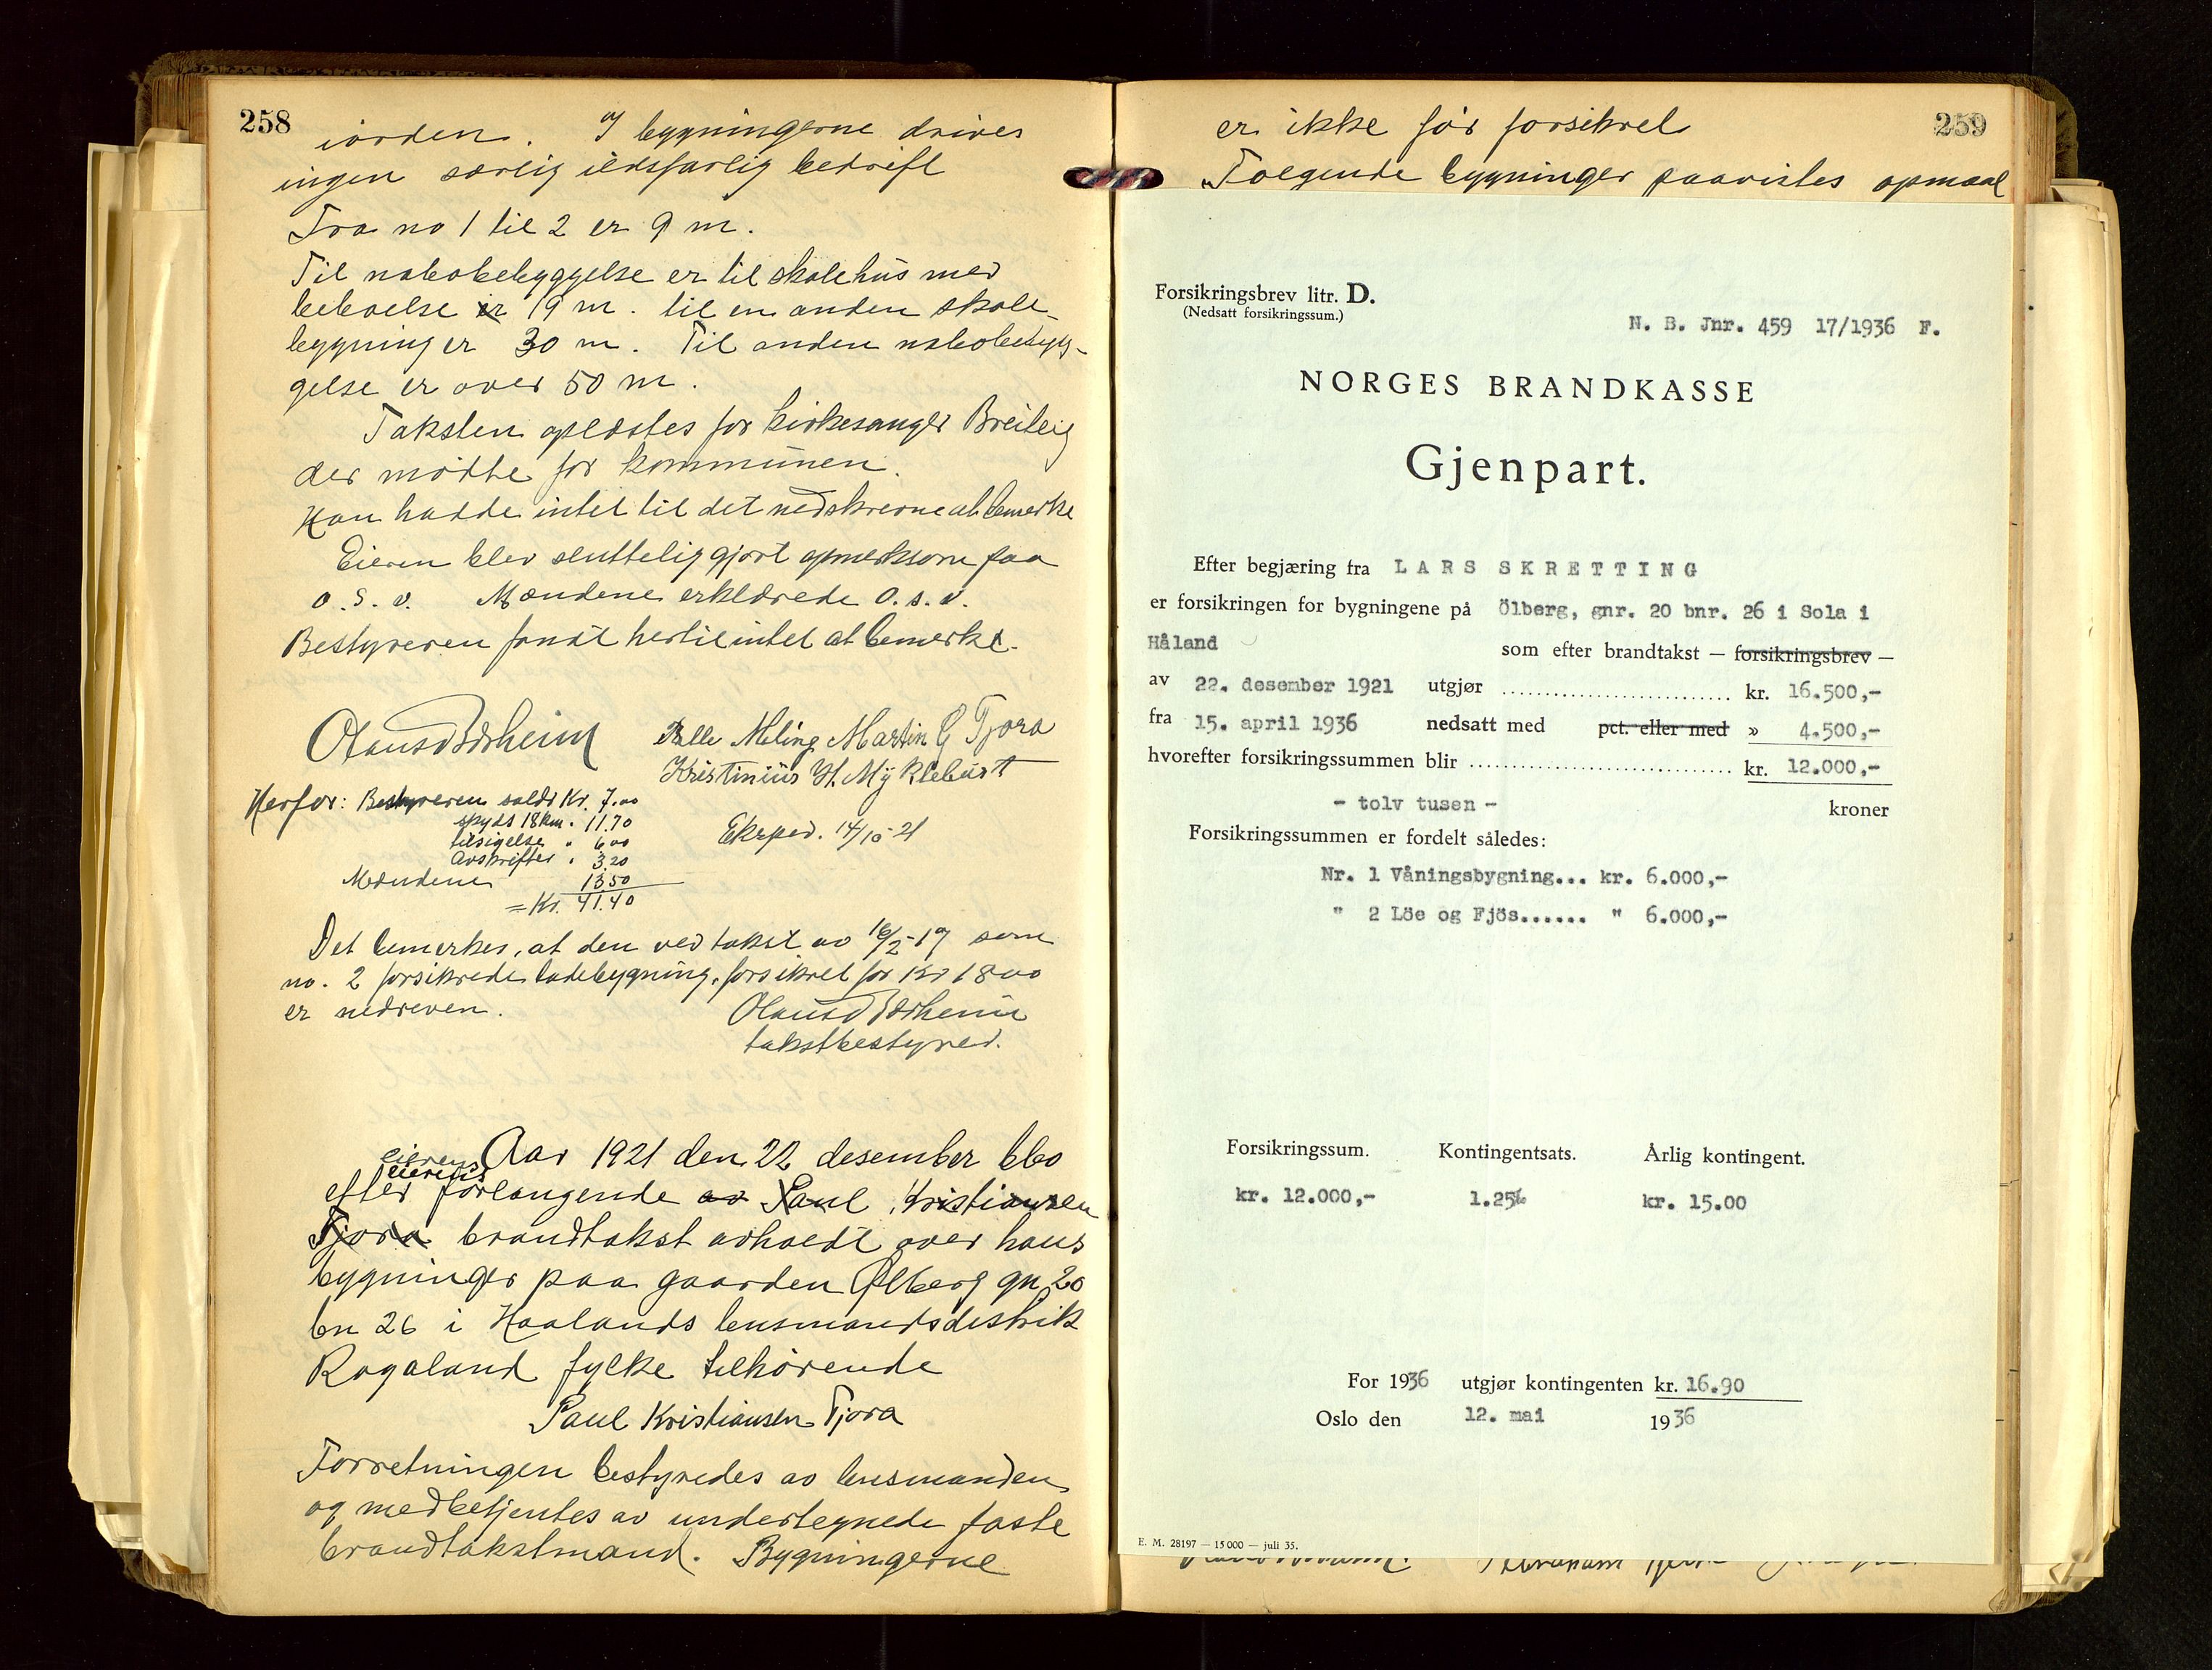 258
jorden. I bygningerne drives
ingen særlig ildsfarlig bedrift
Fra no 1 til 2 er 9 m.
Til nabobebyggelse er til skolehus med
beboelse er 19 m. til en anden skole-
bygning er 30 m. Til anden nabobebyg-
gelse er over 50 m.
Taksten oplæstes for kirkesanger Breiteig
der mødte for kommunen.
Han hadde intet til det nedskrevne at bemerke
Eieren blev sluttelig gjort opmerksom paa
o. s. v. Mændene erklærede o. s. v.
Bestyreren fandt hertil intet at bemerke.
Olaus Bærheim Palle Meling Martin G Tjora
Kristinius H. Myklebust
Herfor: Bestyreren saldr Kr. 7.00
skyds 18 km. " 11.70
tilsigelse " 6 00
Avskrifter " 3.20
Mændene 13 50
= Kr. 41.40
Ekxped. 14/10-21
Det bemerkes, at den ved takst av 16/2-17 som
no. 2 forsikrede ladebygning, forsikret for Kr 1800
er nedreven.
Olaus Bærheim
takstbestyrer.
eierens Aar 1921 den 22 desember blev
eierens
efter forlangende av Paul Kristiansen
Tjora brandtakst avholdt over hans
bygninger paa gaarden Ølberg gn 20
bn 26 i Haalands lensmandsdistrikt
Rogaland fylke tilhørende
Paul Kristiansen Tjora
Forretningen bestyredes av lensmanden
og medbetjentes av undertegnede faste
brandtakstmænd. Bygningerne
259
er ikke før forsikret
Følgende bygninger paavistes opmaalt
Forsikringsbrev litr. D.
(Nedsatt forsikringssum.)
N. B. Jnr. 459 17/1936 F.
NORGES BRANDKASSE
Gjenpart.
Efter begjæring fra LARS SKRETTING
er forsikringen for bygningene på Ölberg, gnr. 20 bnr. 26 i Sola i
Håland som efter brandtakst — forsikringsbrev —
av 22. desember 1921 utgjør .......................... kr. 16.500,-
fra 15. april 1936 nedsatt med pct. eller med » 4.500,-
hvorefter forsikringssummen blir .............................. kr. 12.000,-
- tolv tusen - kroner
Forsikringssummen er fordelt således:
Nr. 1 Våningsbygning... kr. 6.000,-
" 2 Löe og Fjös...... " 6.000,-
Forsikringssum. Kontingentsats. Årlig kontingent.
kr. 12.000,- 1.25‰ kr. 15.00
For 1936 utgjør kontingenten kr. 16.90
Oslo den 12. mai 1936
E. M. 28197 — 15 000 — juli 35.